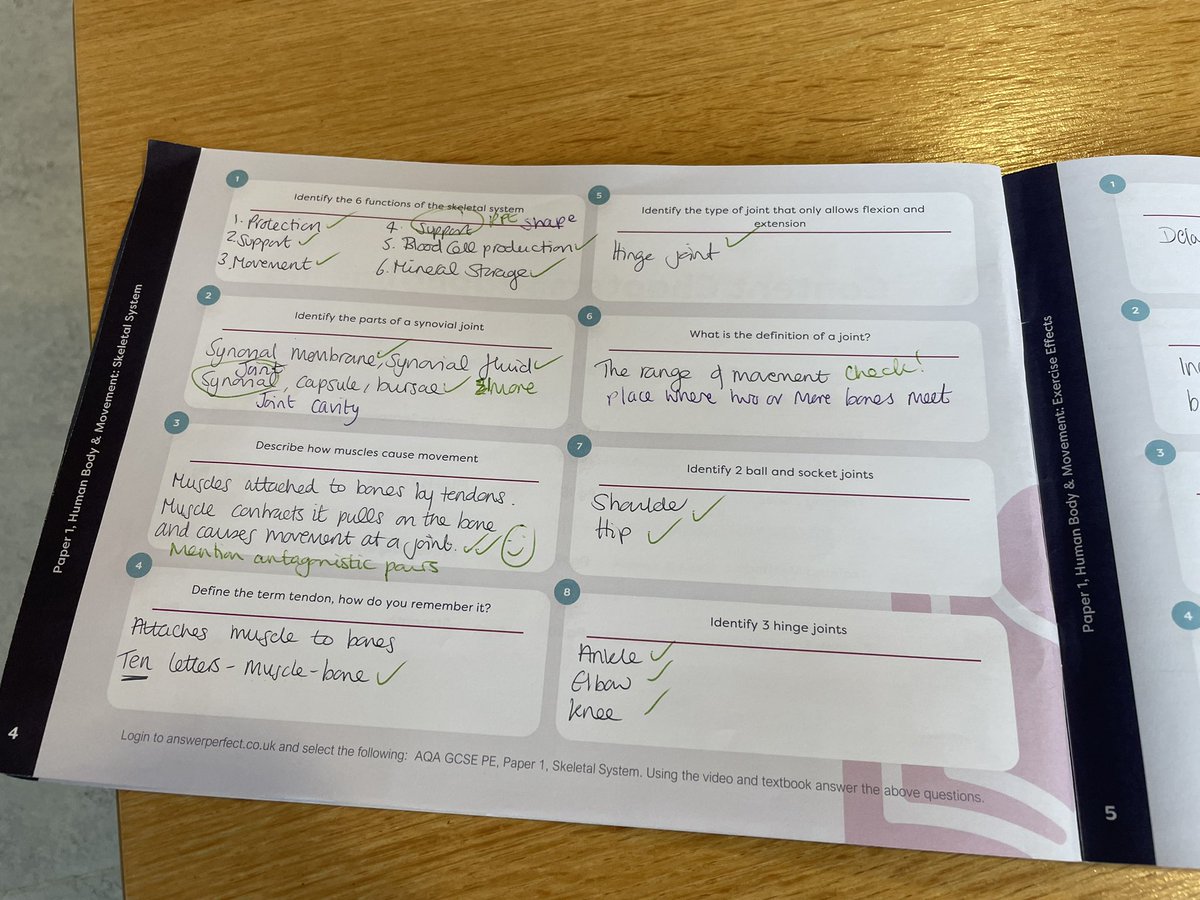 Paper 1, Human Body & Movement: Skeletal System
4
1
Identify the 6 functions of the skeletal system
1. Protection
2. Support
3. Movement
4. Support rpt shape
5. Blood Cell production
6. Mineral Storage
2
Identify the parts of a synovial joint
Synovial membrane, Synovial fluid
Joint
Synovial, capsule, bursae 2 more
Joint cavity
3
Describe how muscles cause movement
Muscles attached to bones by tendons.
Muscle contracts it pulls on the bone
and causes movement at a joint.
Mention antagonistic pairs
4
Define the term tendon, how do you remember it?
Attaches muscle to bones
Ten letters - muscle-bone
5
Identify the type of joint that only allows flexion and
extension
Hinge joint
6
What is the definition of a joint?
The range of movement check!
place where two or more bones meet
7
Identify 2 ball and socket joints
Shoulde
Hip
8
Identify 3 hinge joints
Ankle
Elbow
knee
Login to answerperfect.co.uk and select the following: AQA GCSE PE, Paper 1, Skeletal System. Using the video and textbook answer the above questions.
Paper 1, Human Body & Movement: Exercise Effects
5
1
2
3
4